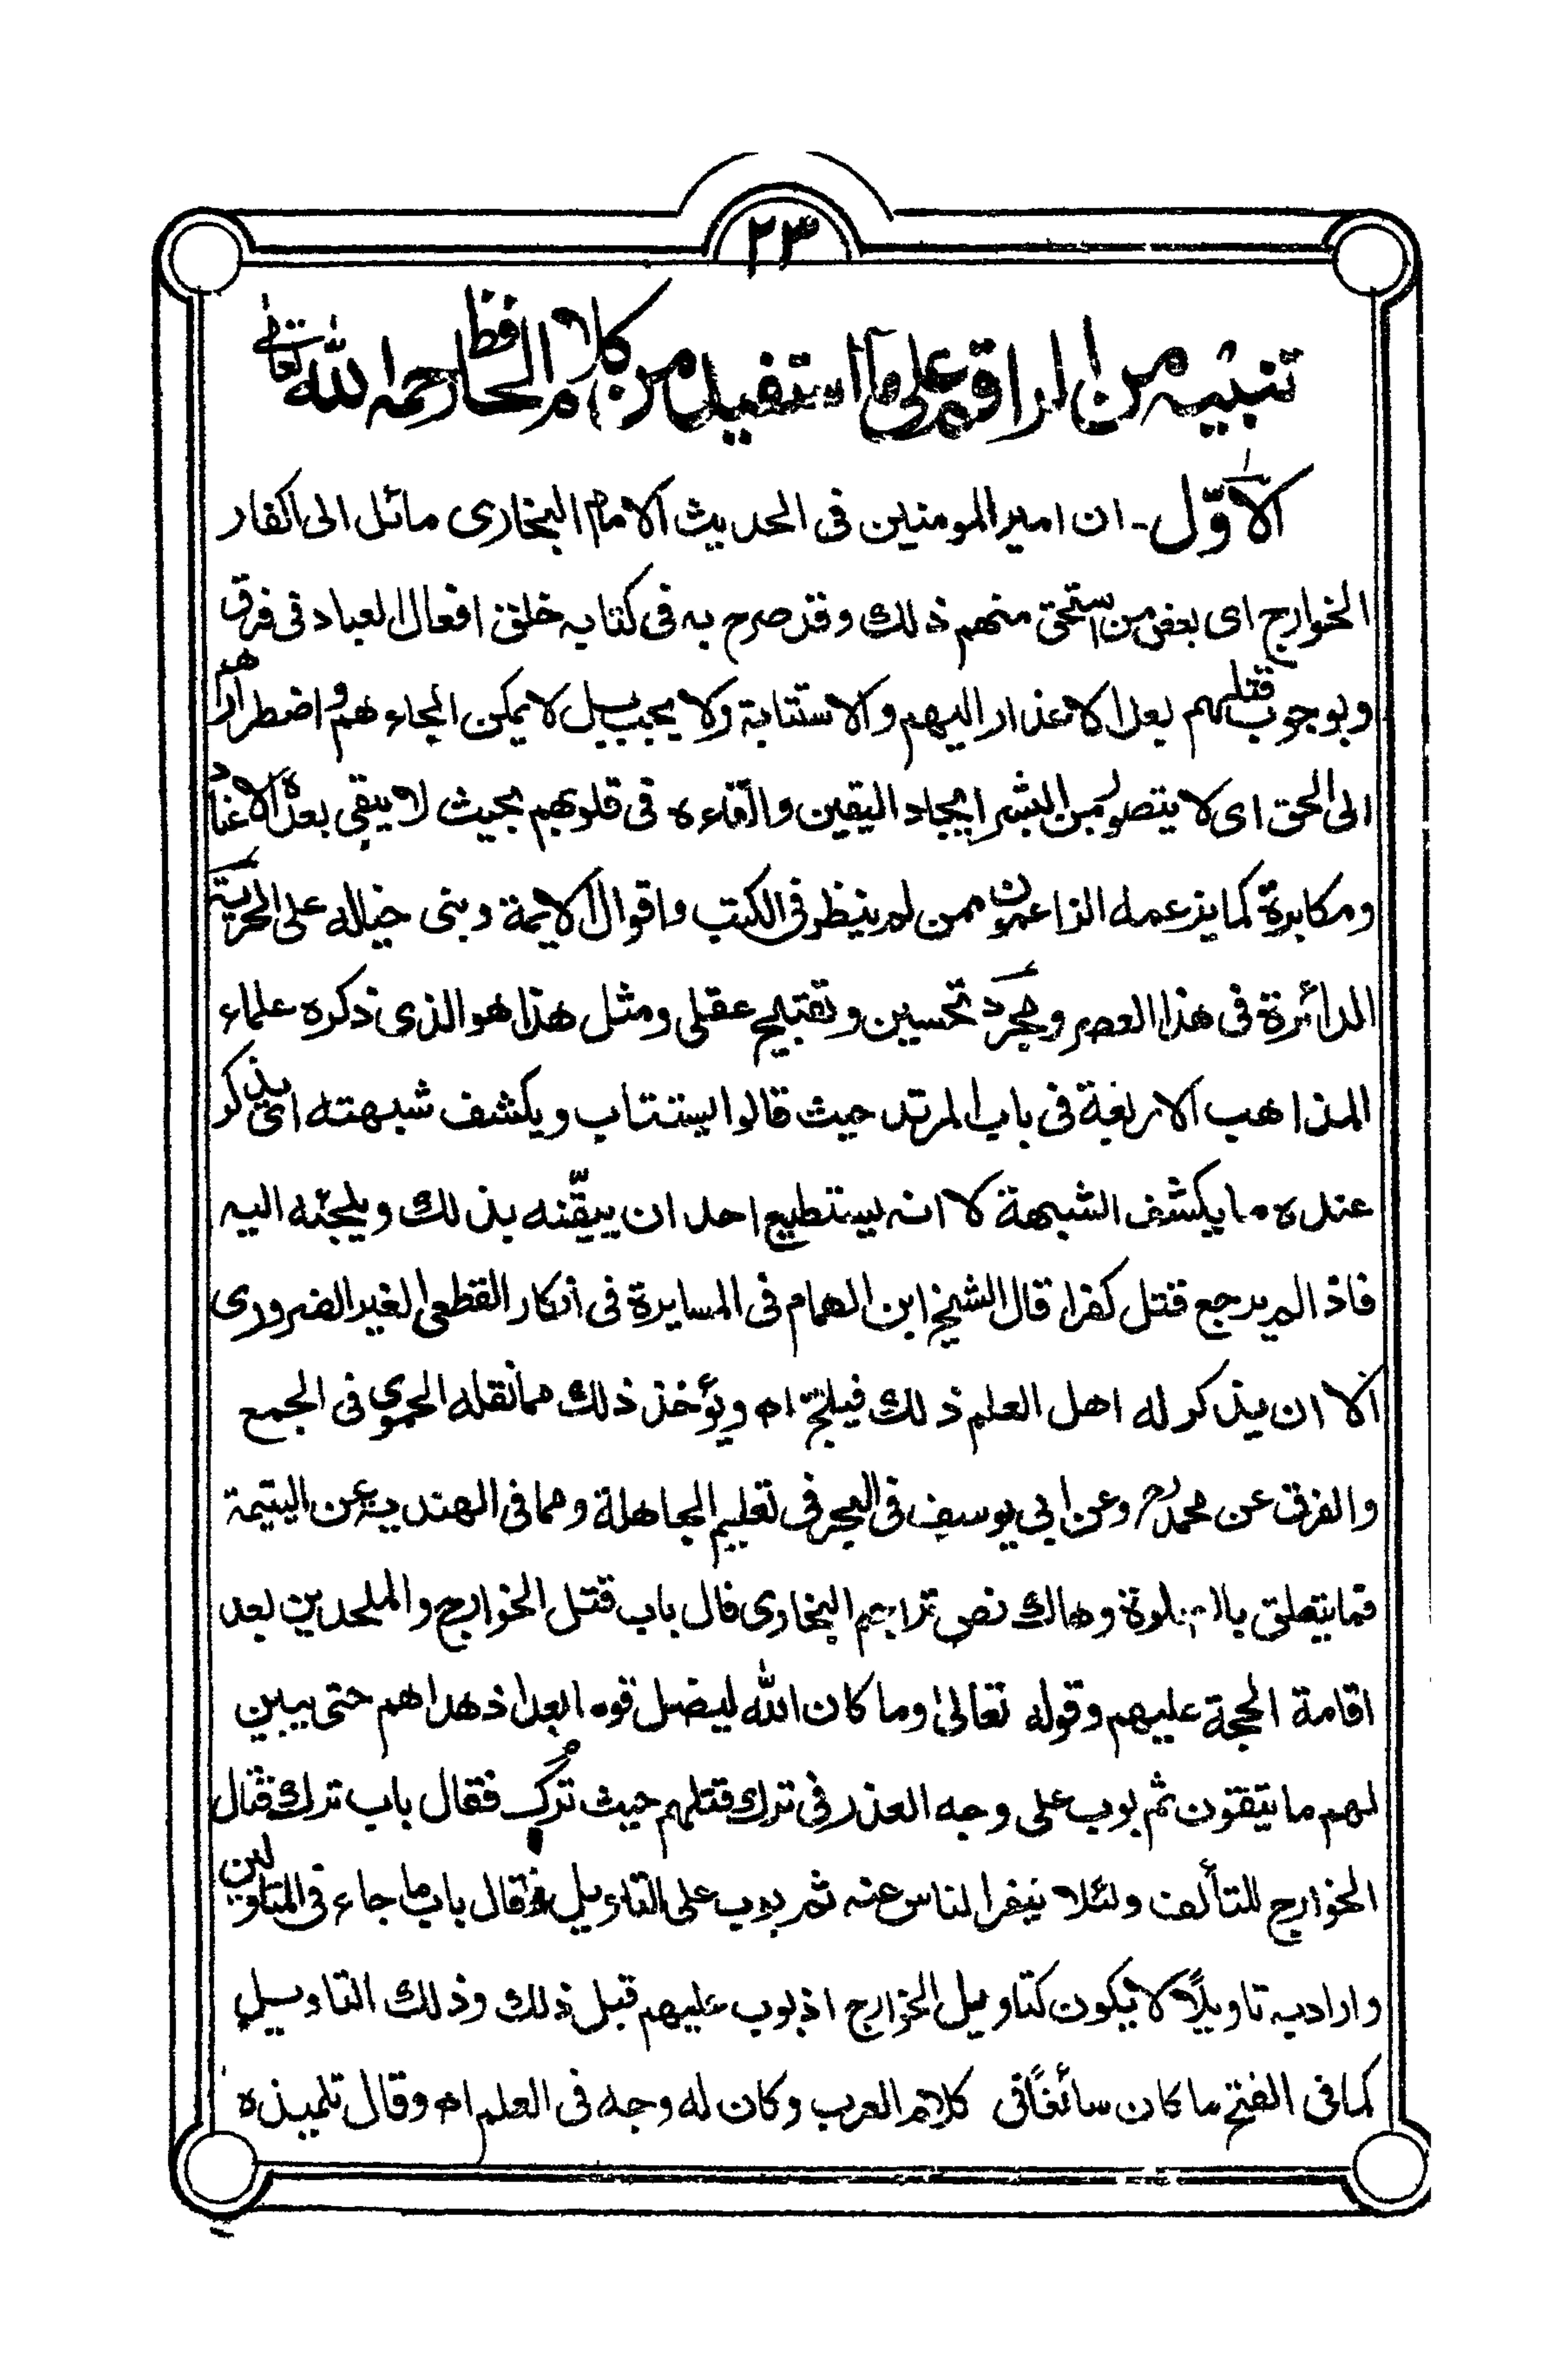 ٢٣
تنبيه من الراقم على ما استفيد من كلام الحافظ رحمه الله تعالى
الاوّل - ان امير المومنين فى الحديث الامام البخارى مائل الى اكفار
الخوارج اى بعض من استحق منهم ذلك وقد صرح به فى كتابه خلق افعال العباد فى فرق
وبوجوب قتلهم بعد الاعذار اليهم والاستتابة ولا يجب بل لا يمكن الجاءهم واضطرارهم
الى الحق اى لا يتصور من البشر ايجاد اليقين والقاءه فى قلوبهم بحيث لا يبقى بعده الاعناد
ومكابرة كما يزعمه الزاعمون ممن لم ينظر فى الكتب واقوال الايمة وبنى خياله على الحرية
الدائرة فى هذا العصر ومجرد تحسين وتقبيح عقلى ومثل هذا هو الذى ذكره علماء
المذاهب الاربعة فى باب المرتد حيث قالوا يستتاب ويكشف شبهته اى يذكر
عنده ما يكشف الشبهة لا انه يستطيع احد ان ييقّنه بذلك ويلجئه اليه
فاذا لم يرجع قتل كفرا قال الشيخ ابن الهمام فى المسايرة فى انكار القطعى الغير الضرورى
الا ان يذكر له اهل العلم ذلك فيلجّ اه ويؤخذ ذلك مما نقله الحموى فى الجمع
والفرق عن محمدؒ وعن ابى يوسف فى البحر فى تعليم الجاهلة ومما فى الهندية عن اليتيمة
فما يتعلق بالصلوة وهاك نص تراجم البخارى قال باب قتل الخوارج والملحدين بعد
اقامة الحجة عليهم وقوله تعالى وما كان الله ليضل قوما بعد اذ هداهم حتى يبين
لهم ما يتقون ثم بوب على وجه العذر فى ترك قتلهم حيث تُرك فقال باب ترك قتال
الخوارج للتألف ولئلا ينفر الناس عنه ثم بوب على التاويل فقال باب ما جاء فى المتاولين
واراد به تاويلًا لا يكون كتاويل الخوارج اذ بوب عليهم قبل ذلك وذلك التاويل
كما فى الفتح ما كان سائغًا فى كلام العرب وكان له وجه فى العلم اه وقال تلميذه